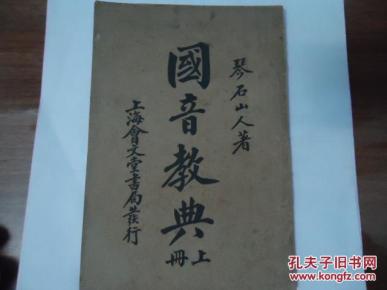 琴石山人著
國音教典
上冊
上海會文堂書局發行
孔夫子旧书网
www.kongfz.com